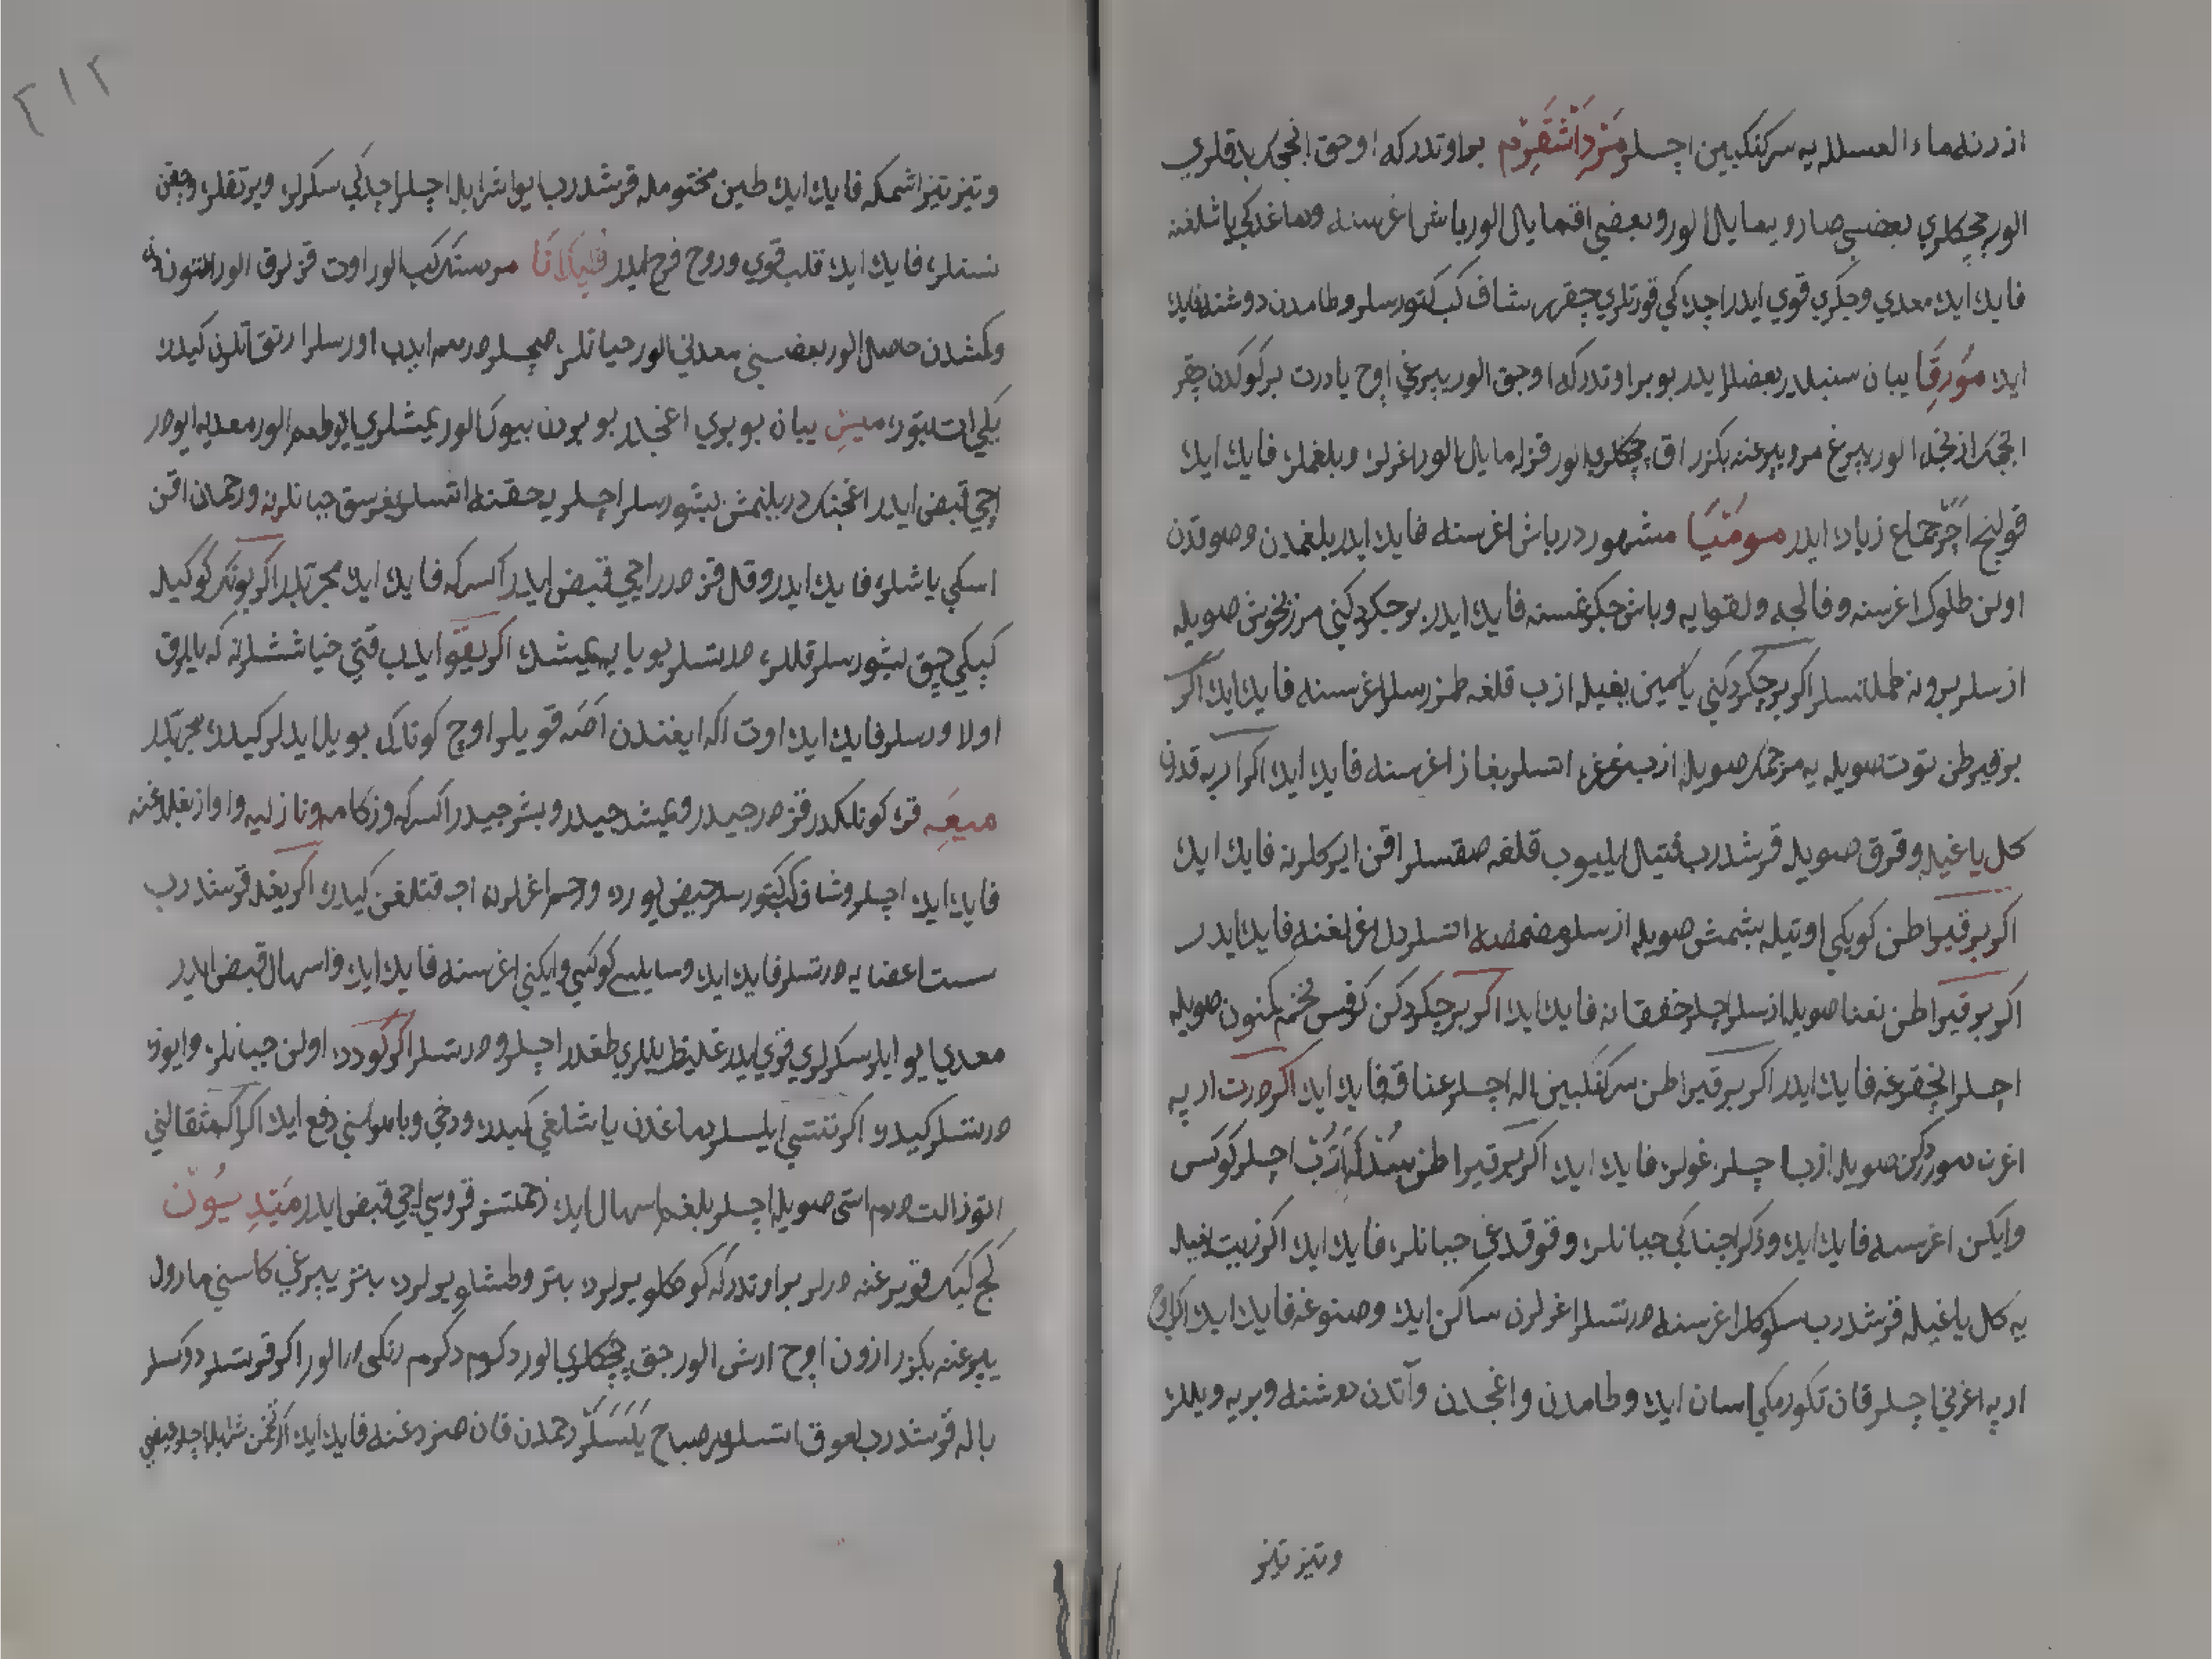 اذرنده ماء العسلله يه سركنكبين اچسلر مَرْدَاشْقَرِم بر اوتدركه اوجق انجك بدقلري
الور چچكلري بعضسي صارويه مايل الور وبعضي اقه مايل الور باش اغرسنه ودماغدكي ياشلغنه
فايده ايده معدي وجكري قوي ايدر اچده كي قورتلري چقرر شاف كب كتورسلر وطامدن دوشنه فايده
ايده مُورِقَا يبان سنبليدر بعضلر ايدر بو بر اوتدركه اوجق الور يپرغي اوچ يا درت بر كوكدن چقر
انجك ازنجه الور يپرغ مرو يپرغنه بكزر اق چچكلري الور قزله مايل الور اغرلره وبلغملره فايده ايده
قولنج اچر جماع زياده ايدر مومْيَا مشهوردر باش اغرسنه فايده ايدر بلغمدن وصوقدن
اولن طلوك اغرسنه وفالجه ولقوايه وباش چكزنمسنه فايده ايدر بر جكردكني مرزنخوش صويله
ازسلر برونه طملاتسلر اكر بر جكردكني ياسمين يغيله ازب قلغه طمزرسلر اغرسنه فايده ايده اكر
بر قيرطن توت صويله يه مرجمك صويله ازب غرغره اتسلر بغاز اغرسنه فايده ايده اكر اربه قدرن
كل ياغيله وقرق صويله قرشدرب فتيل ايليوب قلغه صقسلر اقن ايركلرنه فايده ايده
اكر بر قيراطن كويكي اوتيله بشمش صويله ازسلر ومضمضه اتسلر دل اغرلغنه فايده ايدر
اكر بر قيراطن نعنا صويله ازسلر اچسلر خفقانه فايده ايده اكر بر جكردكن كرفس تخم كمنون صويله
اچسلر انچقرغه فايده ايدر اكر بر قيراطن سركنكبين اله اچسلر عناقه فايده ايده اكر درت اربه
اغرن صوردكن صويله ازب اچسلر غولره فايده ايده اكر بر قيراطن سُدْلَه ازب اچسلر كوكس
وايكن اغرسنه فايده ايده وذكر اچنداكي جبانلره وقوقدغي جبانلره فايده ايده اكر زيت يغيله
يه كل ياغيله قرشدرب سكوكلر اغرسنه درتسلر اغرلرن ساكن ايده وصنوغه فايده ايده اكر اوچ
اربه اغرني اچسلر قان تكورمكي اسان ايده وطامدن واغجدن وآتدن دوشنه وبريه وييللره
وتيز تيز
وتيز تيز اشمكه فايده ايده طين مختومله قرشدرب ايو شرابله اچسلر اچدكي سكرلره ويرتقلره وچقن
نسنلره فايده ايده قلب قوي وروح فرح ايدر مرسنك كب الور اوت قزلرق الور التوندن
وكمشدن حاصل الور بعضسني معدني الور جبانلره صچسلر مرهم ايدب اورسلر ارتق اتلرن كيدره
يكي ات بتوره ميسِ يبان بو بوي اغجدر بو بودن بيوك الور يمشلري ايو طعم الور معديه ايودر
اچي قبض ايدر اغجنك دربلنمش بشورسلر اچسلر يه حقنه اتسلر بغرسق جبانلرنه ورحمدن اقن
اسكي ياشلره فايده ايدر وقل قزدرر اچي قبض ايدر اكسركه فايده ايده مجرتدر اكر بونكر كوكيله
كپكي چق بشورسلر قللره درتسلر بويايه يمشده اكر يقو ايدب قتي جنا ششلرنه كه بايلرق
اولا ورسلر فايده ايده اوت اكه ايغندن اصه قويلر اوچ كونلك بويله ايدلر كيدره مجرتدر
ميعَه قره كونلكدر قزدرجيدر ويمشدجيدر وبشرجيدر اكسركه وزكامه ونازليه واواز بغلدغنه
فايده ايده اچسلر وشاف كب كتورسلر حيض ايو رده ورحم اغزلرن اچه قتلغن كيدره اكر يغله قرشدرب
سست اعضايه درتسلر فايده ايده وسايلسي كوكسي وايكني اغرسنه فايده ايده واسهال قبض ايدر
معدي ايو ايلر سكرلري قوي ايدر غليظ يللري طغدر اچسلر ودرتسلر اكر كودده اولن جبانلره وايوزه
درتسلر كيدره اكر تنتسي ايلسلر دماغدن ياشلغي كيدره ودخي وبا هواسني دفع ايده اكر ايكي مثقالني
اتوز التي درم استي صويله اچسلر بلغم اسهال ايده زحمتسز قروسي اچي قبض ايدر مَيَدِيسُوُن
كج كيك قويرغنه درلر بر اوتدركه كولكلو يرلرده بتر وطشلو يرلرده بتر يپرغي كاسني مارول
يپرغنه بكزر ازون اوچ ارش الور چق چچكلري الور دكرم دكرم رنكي ار الور اكر قرتسلر دوكسلر
باله قرشدرب لعوق اتسلر هر صباح يَلَسَلَر رحمدن قان صزدغنه فايده ايده اكر تخمن شربله اچسلر حيضي
٢١٢